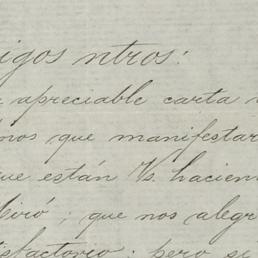 igos ntros:
apreciable carta
mos que manifestar
ue están Vs. hacien
que nos alegr
sfactorio; pero si